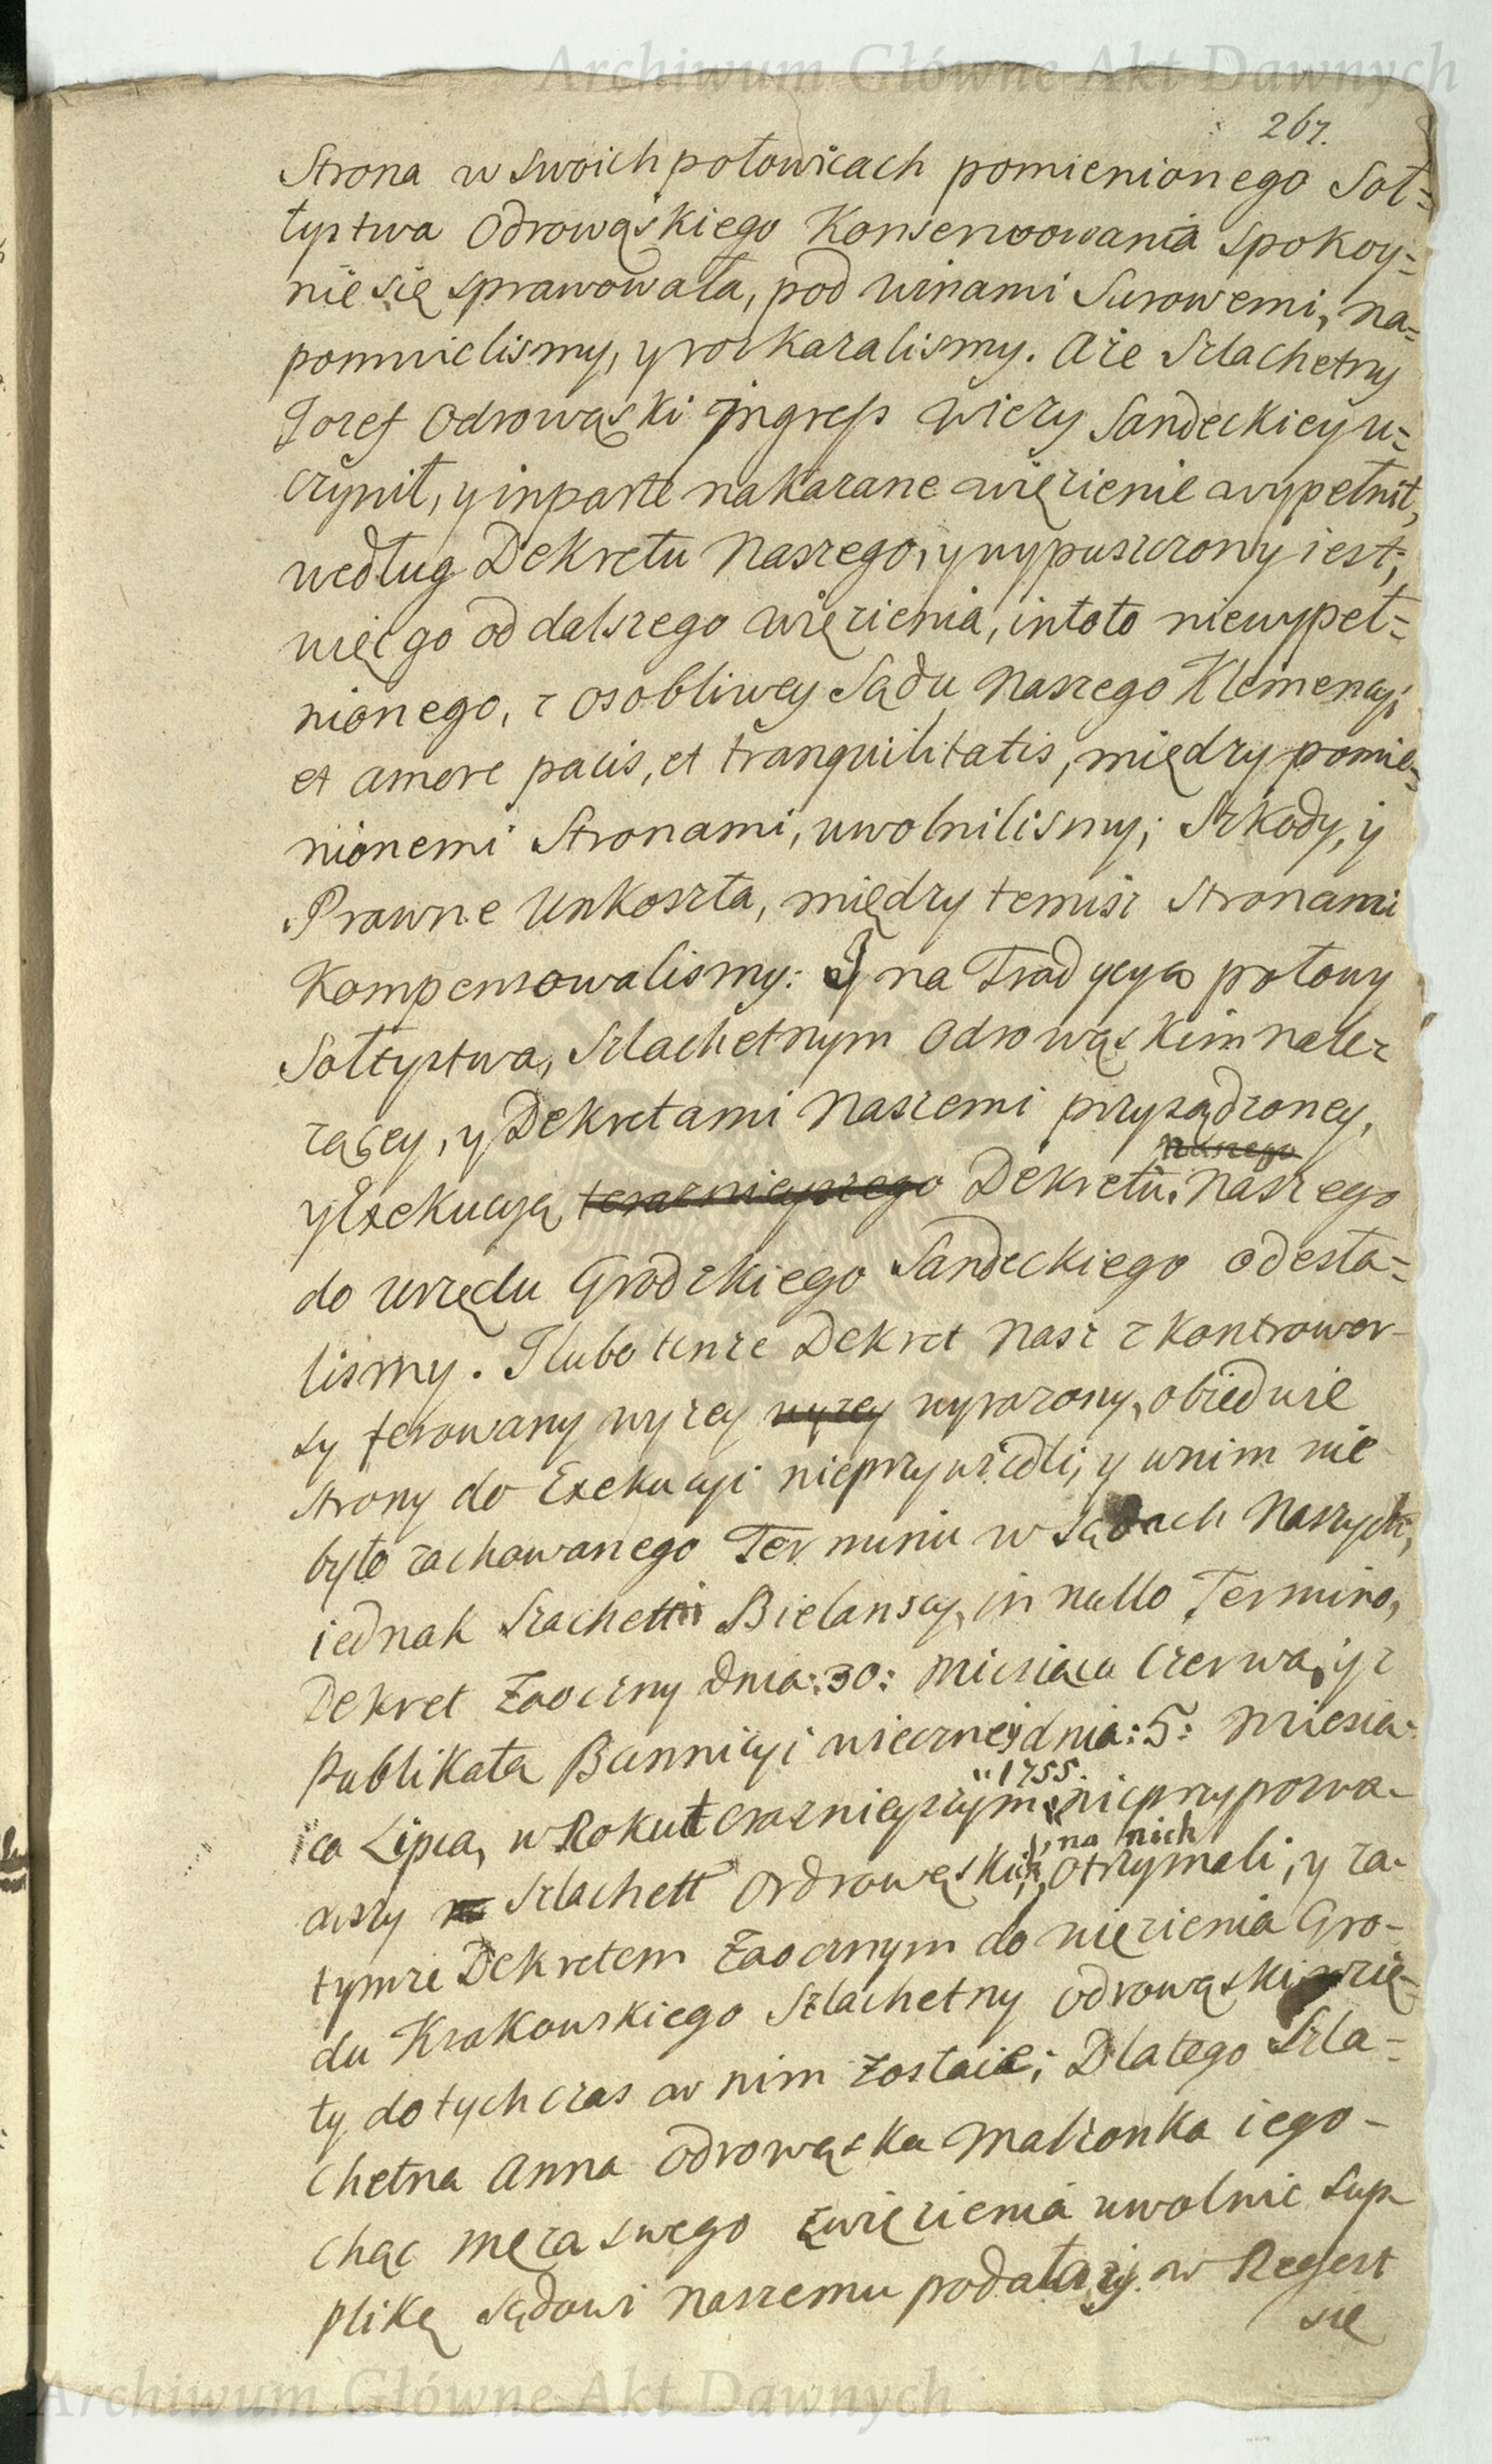 Archiwum Główne Akt Dawnych
267.
Strona w swoich połowicach pomienionego Soł=
tystwa Odrowąskiego Konserwowania spokoy=
nie się sprawowała, pod winami Surowemi, na=
pomnielismy, y roskazalismy. Aże Szlachetny
Jozef Odrowąski Jngress Wiezy Sandeckiey u=
czynił, y inparte nakazane więzienie wypełnił,
według Dekretu Naszego, y wypuszczony iest;
więc go od dalszego więzienia, intoto niewypeł=
nionego, z osobliwey Sądu Naszego Klemencyi
et amore pacis, et tranquilitatis, między pomie=
nionemi Stronami, uwolnilismy; Szkody, y
Prawne Unkoszta, między temisz Stronami
Kompensowalismy: Y na Tradycyą połowy
Sołtystwa, Szlachetnym Odrowąskim nale=
zącey, y Dekretami Naszemi przysądzoney,
naszego
y Exekucyą teraznieyszego Dekretu Naszego
do Urzędu Grodzkiego Sandeckiego odesła=
lismy. J lubo tenze Dekret Nasz z kontrower-
sy ferowany wyzey wyzey wyrazony, obiedwie
strony do Exekucyi nieprzywiedli, y wnim nie
było zachowanego Terminu w Sądach Naszych,
iednak Szachetni Bielanscy, in nullo Termino,
Dekret Zaoczny Dnia: 30: Miesiąca Czerwa, y z
Publikatą Bannicyi wieczney dnia: 5: Miesią-
1755.
ca Lipca, w Roku teraznieyszym nieprzypozwa-
na nich
wszy Szlachett Odrowąskich, otrzymali, y za-
tymze Dekretem Zaocznym do więzienia Gro-
du Krakowskiego Szlachetny Odrowąski wzię-
ty dotychczas w nim zostaie; Dlatego Szla=
chetna Anna Odrowąska Malzonka iego-
chąc męza swego zwięzienia uwolnic sup-
plikę sądowi Naszemu podała, y w Regestr
się
Archiwum Główne Akt Dawnych